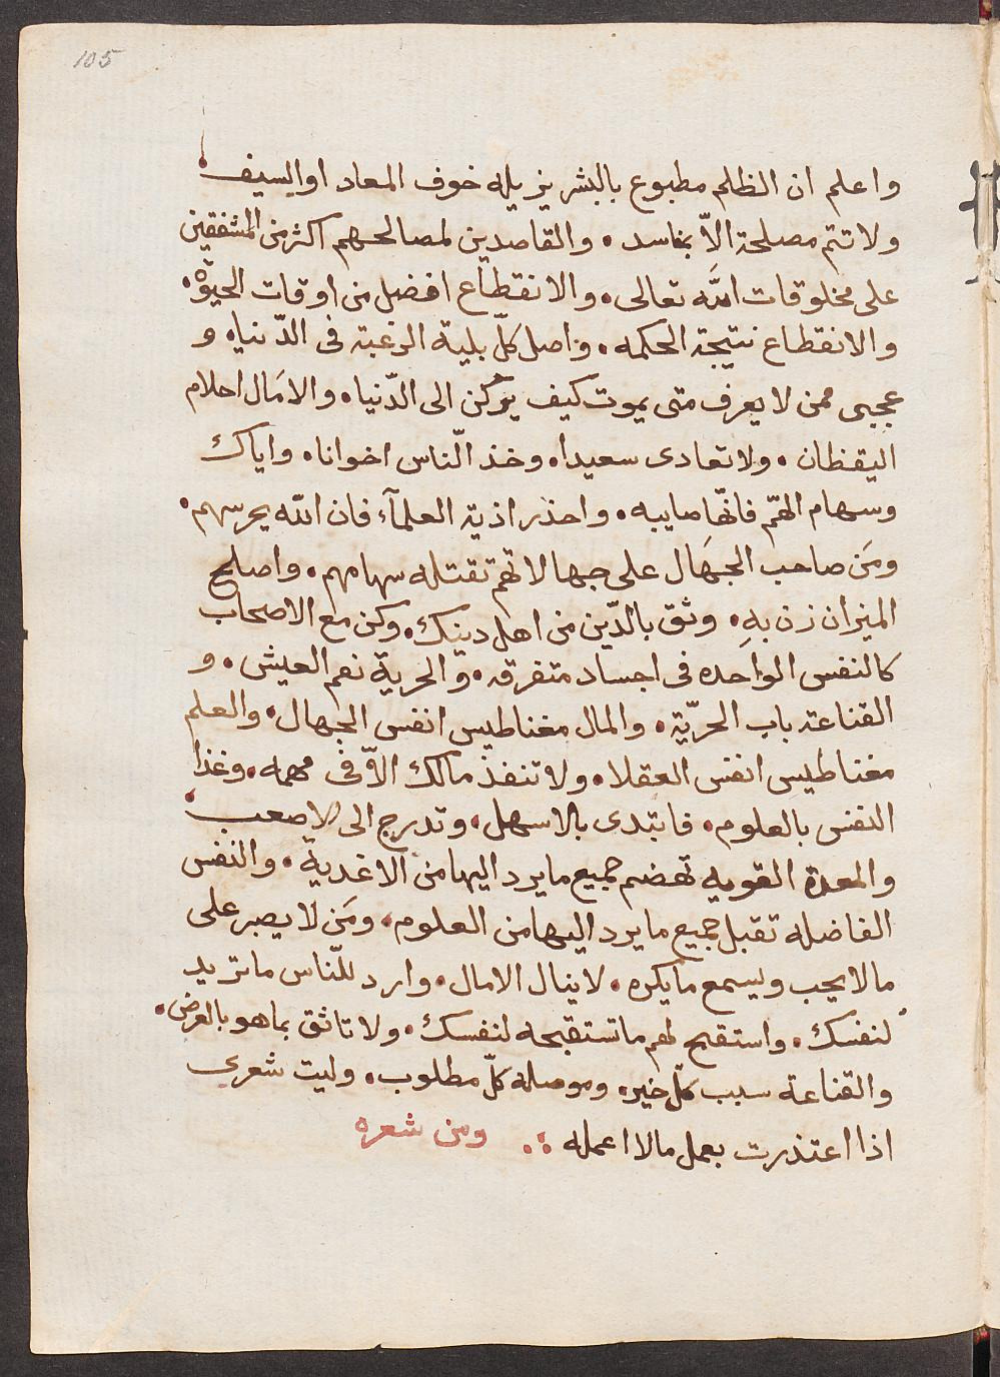 105
واعلم ان الظلم مطبوع بالبشر يزيله خوف المعاد او السيف
ولا تتم مصلحة الاّ بفاسد . والقاصدين لمصالحهم اكثر من المشفقين
على مخلوقات اللّه تعالى . والانقطاع افضل من اوقات الحيوة .
والانقطاع نتيجة الحكمه . واصل كلّ بلية الرغبة فى الدّنيا . و
عجبى ممن لا يعرف متى يموت كيف يركن الى الدّنيا . والامَال احلام
اليقظان . ولا تعادى سعيدا . وخذ النّاس اخوانا . واياك
وسهام الهّم فانّها صايبه . واحذر اذية العلمآء فان اللّه يحرسهم .
ومَن صاحب الجهَال على جهالاتهم تقتله سهامهم . واصلح
الميزان زن بهِ . وثق بالدّين من اهل دينك . وكن مع الاصحاب
كالنفس الواحده فى اجساد متفرقه . والحرية نعم العيش . و
القناعة باب الحريّة . والمال مغناطيس انفس الجهال . والعلم
مغناطيس انفس العقلا . ولا تنفذ مالك الاّ فى مهمه . وغذا
النفس بالعلوم . فابتدى بالاسهل . وتدرج الى الاصعب
والمعدة القويه تهضم جميع ما يرد اليها من الاغدية . والنفس
الفاضله تقبل جميع ما يرد اليها من العلوم . ومَن لا يصبر على
ما لا يحب ويسمع ما يكره . لا ينال الامال . وارد للنّاس ما تريد
لنفسك . واستقبح لهم ما تستقبحه لنفسك . ولا تاثق بما هو بالعرض .
والقناعة سبب كلّ خير . وموصله كلّ مطلوب . وليت شعرى
اذا اعتذرت بعمل ما لا اعمله ؞ ومن شعره